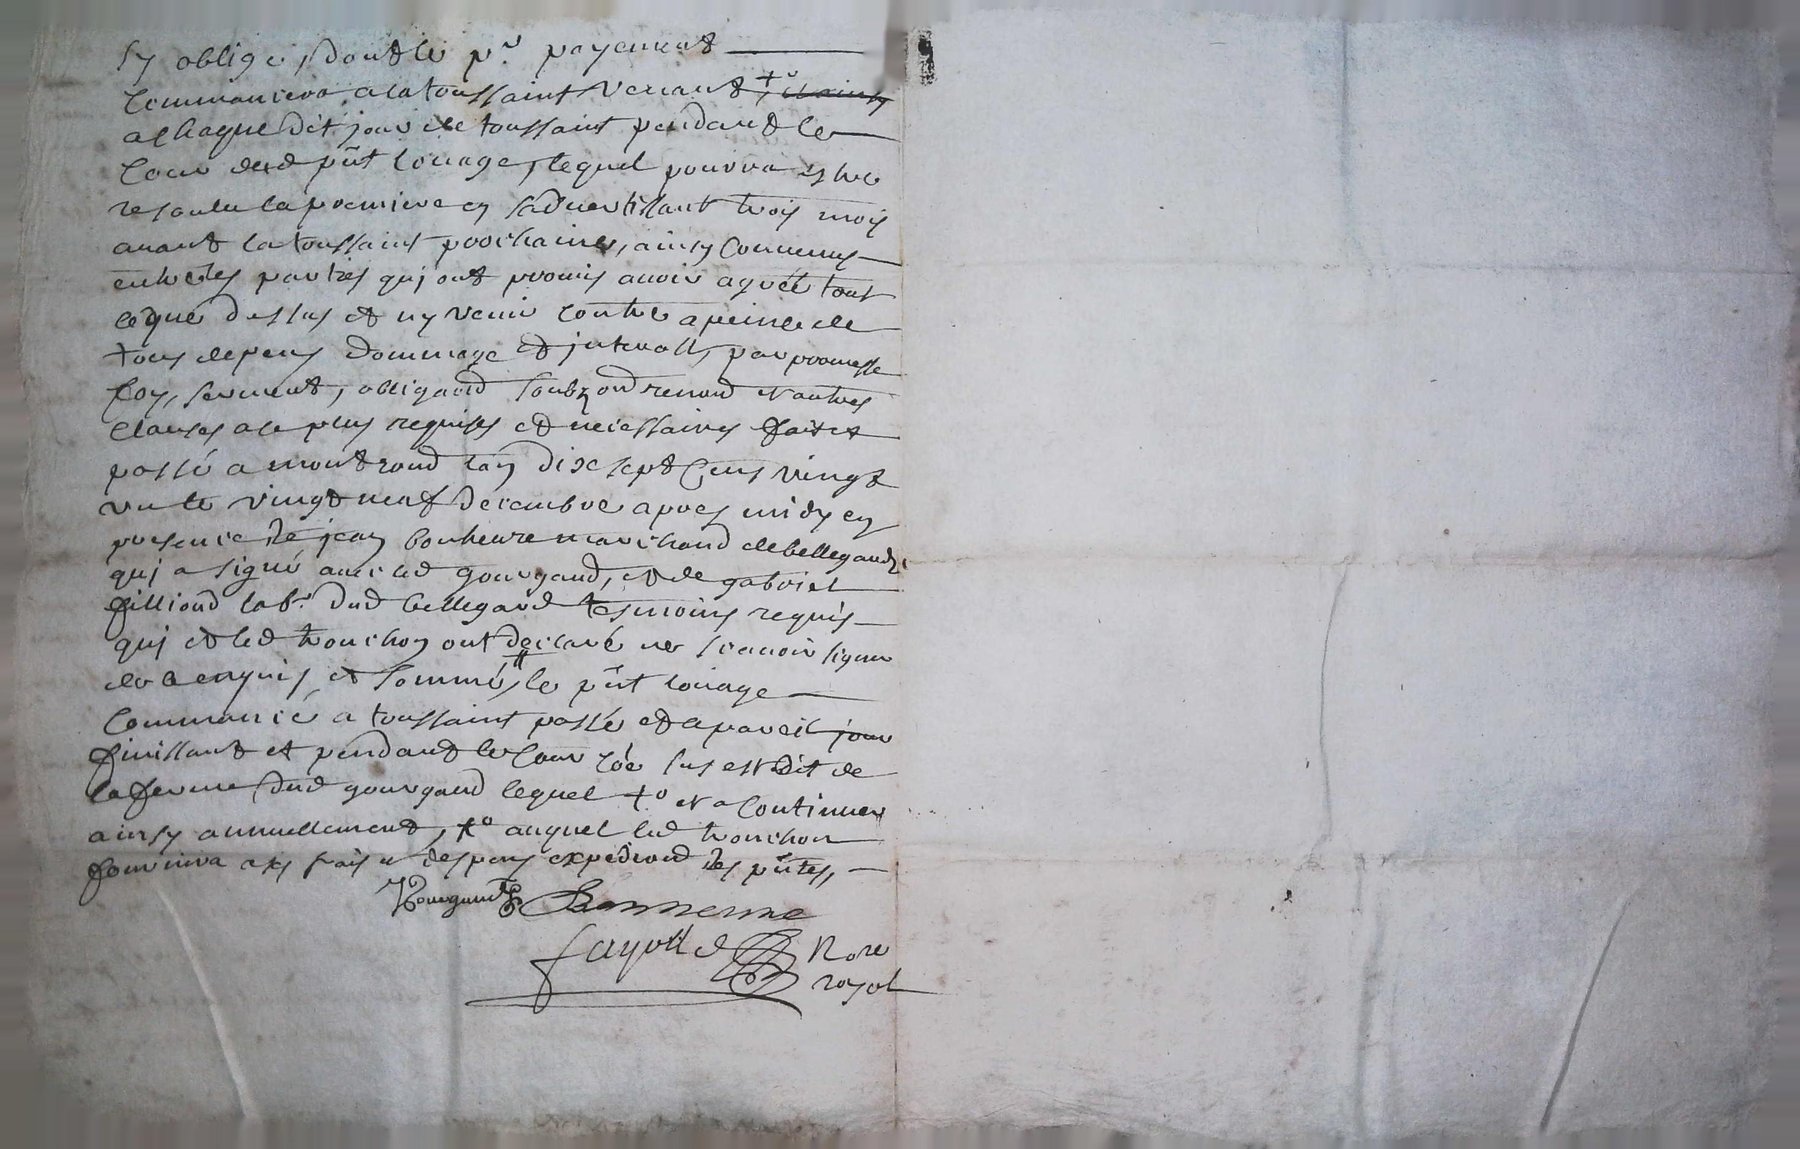 sy oblige, dont le pr. payement
commancera a la toussaint venant
a chaque dit jour de toussaint pendant le
cour dud pnt louage, lequel pourra estre
resoulu la premiere en sadvertissant trois mois
avant la toussaint prochaine, ainsy convenus
entre les parties qui ont promis avoir agréé tout
ce que dessus et ny venir contre a peine de
tous depens dommage et interests, par promesse
foy, serment, obligaond soubz ond renond et autres
clauses a ce plus requises et necessaires fait et
passé a montrond lan dix sept cens vingt
un le vingt neuf decembre apres midy en
presence de jean bonheure marchand de bellegarde
qui a signé avec led gourgaud, et de gabriel
filliond labr. dud bellegard tesmoins requis
qui et led tronchon ont declaré ne scavoir signer
de ce enquis et sommé, le pnt louage
commancé a toussaint passé et a pareil jour
finissant et pendant le cour cóe sus est dit de
la ferme dud gourgaud lequel et a continuer
ainsy annuellement, auquel led tronchon
fournira a ses frais et despens expediond des pntes,
Gourgaud Bonnerme
fayolle Nore
royal